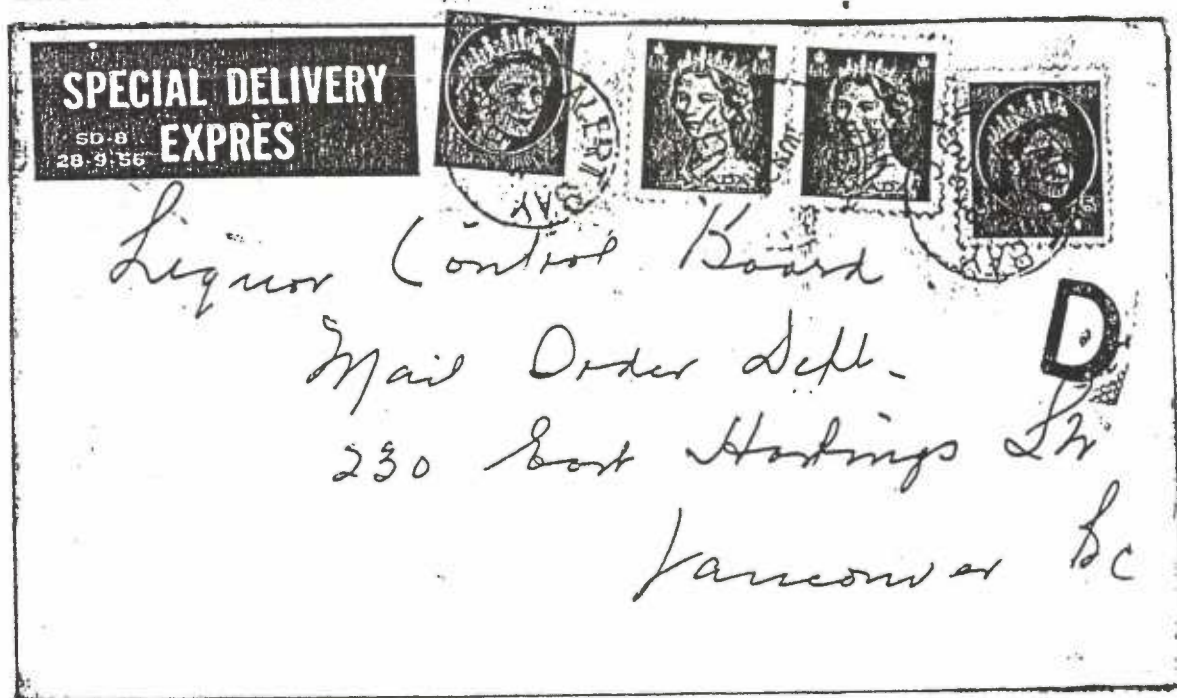 SPECIAL DELIVERY
EXPRÈS
SD-8
28-9-56
ALERT
BAY
BAY
Liquor Control Board
D
Mail Order Dept.
230 East Hastings St
Vancouver BC